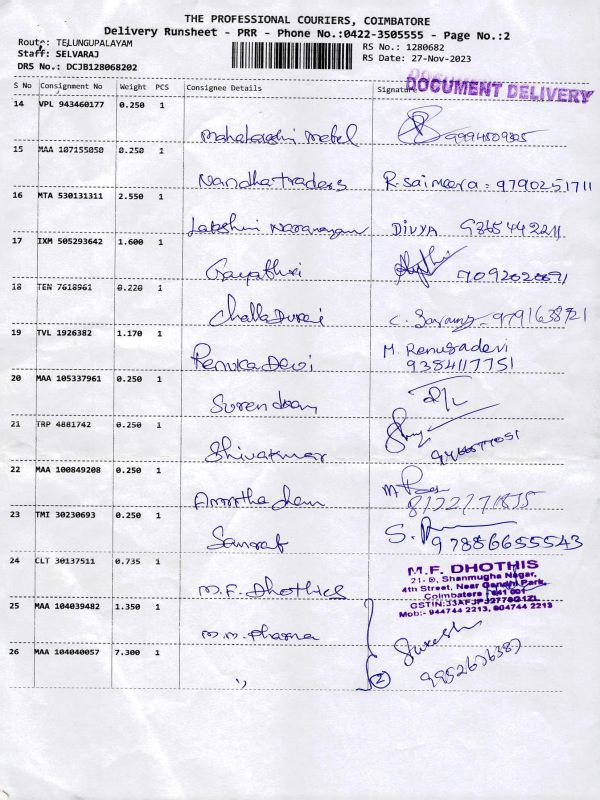 THE PROFESSIONAL COURIERS, COIMBATORE
Delivery Runsheet - PRR - Phone No.:0422-3505555 - Page No.:2
Route: TELUNGUPALAYAM
Staff: SELVARAJ
DRS No.: DCJB128068202
RS No.: 1280682
RS Date: 27-Nov-2023
DOCUMENT DELIVERY
S No Consignment No Weight PCS Consignee Details Signature
14 VPL 943460177 0.250 1
15 MAA 107155050 0.250 1
Nandha traders R. Saimeera. 9790251711
16 MTA 530131311 2.550 1
Lakshmi Narayanan DIVYA 9365442211
17 IXM 505293642 1.600 1
Gayathri
18 TEN 7618961 0.220 1
Challa Durai
19 TVL 1926382 1.170 1
Renuka Devi M. Renugadevi
9384117751
20 MAA 105337961 0.250 1
21 TRP 4881742 0.250 1
Shivakumar
22 MAA 100849208 0.250 1
23 TMI 30230693 0.250 1
97886655543
24 CLT 30137511 0.735 1
M.F. Dhothies
M.F. DHOTHIS
21- Shanmugha Nagar,
4th Street, Near Gandhi Park,
Coimbatore - 641 001
Mob:- 944744 2213, 804744 2213
25 MAA 104039482 1.350 1
M.M. Pharma
Suresh
26 MAA 104040057 7.300 1
,, 2
9952676387